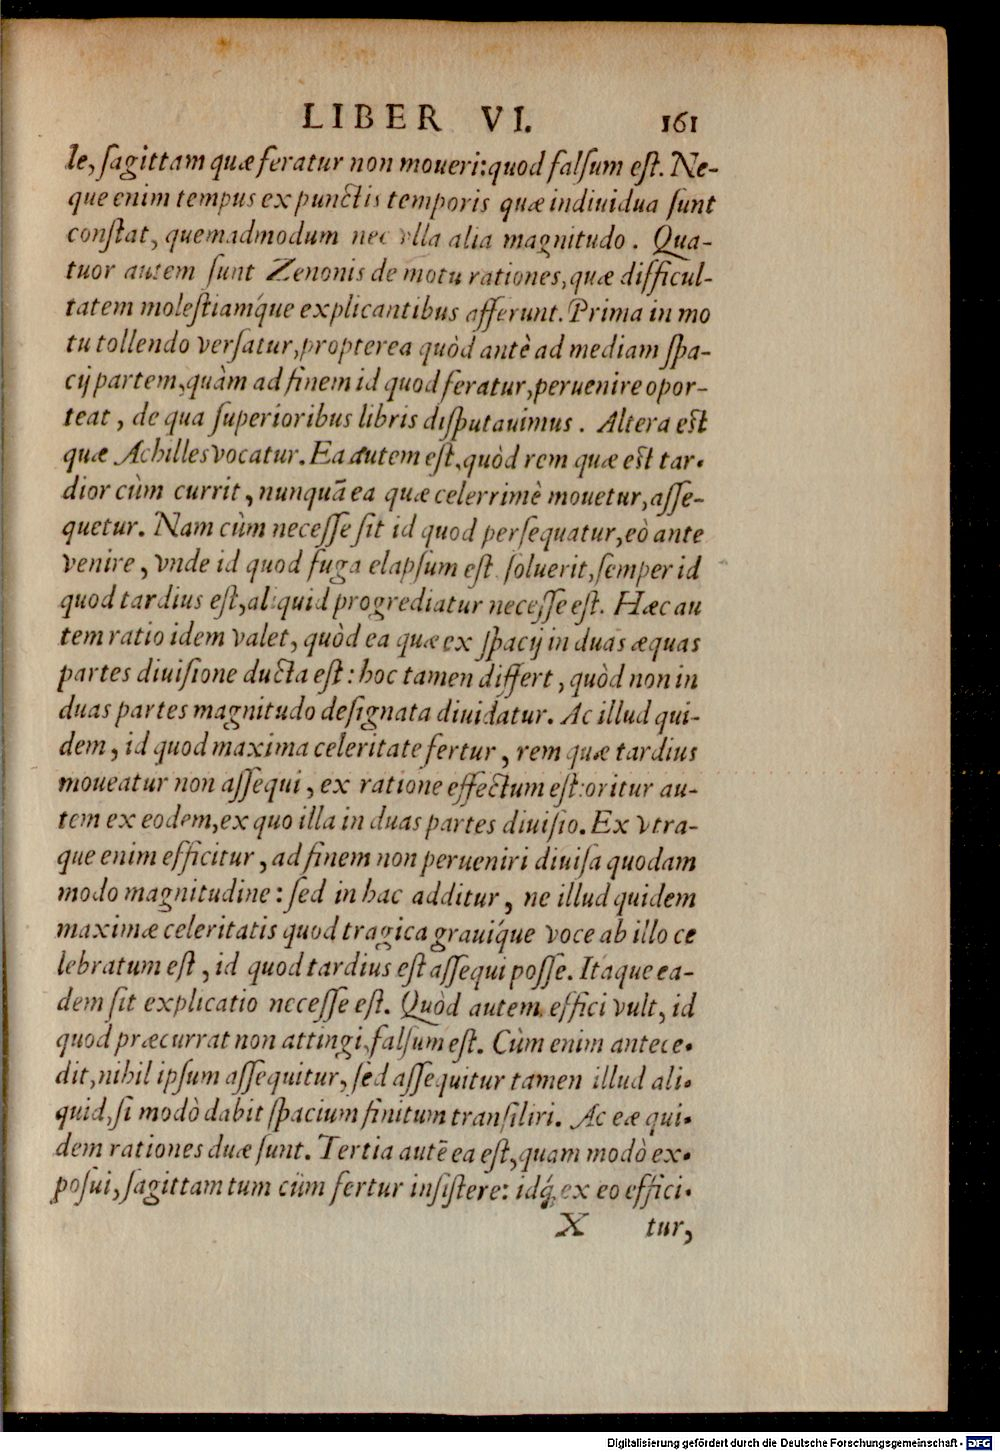 LIBER VI. 161
le, sagittam quæ feratur non moueri: quod falsum est. Ne-
que enim tempus ex punctis temporis quæ indiuidua sunt
constat, quemadmodum nec vlla alia magnitudo. Qua-
tuor autem sunt Zenonis de motu rationes, quæ difficul-
tatem molestiamq́ue explicantibus afferunt. Prima in mo
tu tollendo versatur, propterea quòd antè ad mediam spa-
cij partem, quàm ad finem id quod feratur, peruenire opor-
teat, de qua superioribus libris disputauimus. Altera est
quæ Achilles vocatur. Ea autem est, quòd rem quæ est tar-
dior cùm currit, nunquā ea quæ celerrimè mouetur, asse-
quetur. Nam cùm necesse sit id quod persequatur, eò ante
venire, vnde id quod fuga elapsum est soluerit, semper id
quod tardius est, aliquid progrediatur necesse est. Hæc au
tem ratio idem valet, quòd ea quæ ex spacij in duas æquas
partes diuisione ducta est: hoc tamen differt, quòd non in
duas partes magnitudo designata diuidatur. Ac illud qui-
dem, id quod maxima celeritate fertur, rem quæ tardius
moueatur non assequi, ex ratione effectum est: oritur au-
tem ex eodem, ex quo illa in duas partes diuisio. Ex vtra-
que enim efficitur, ad finem non perueniri diuisa quodam
modo magnitudine: sed in hac additur, ne illud quidem
maximæ celeritatis quod tragica grauiq́ue voce ab illo ce
lebratum est, id quod tardius est assequi posse. Itaque ea-
dem sit explicatio necesse est. Quòd autem effici vult, id
quod præcurrat non attingi, falsum est. Cùm enim antece-
dit, nihil ipsum assequitur, sed assequitur tamen illud ali-
quid, si modò dabit spacium finitum transiliri. Ac eæ qui-
dem rationes duæ sunt. Tertia autē ea est, quam modò ex-
posui, sagittam tum cùm fertur insistere: idq́; ex eo effici-
X tur,
Digitalisierung gefördert durch die Deutsche Forschungsgemeinschaft - DFG